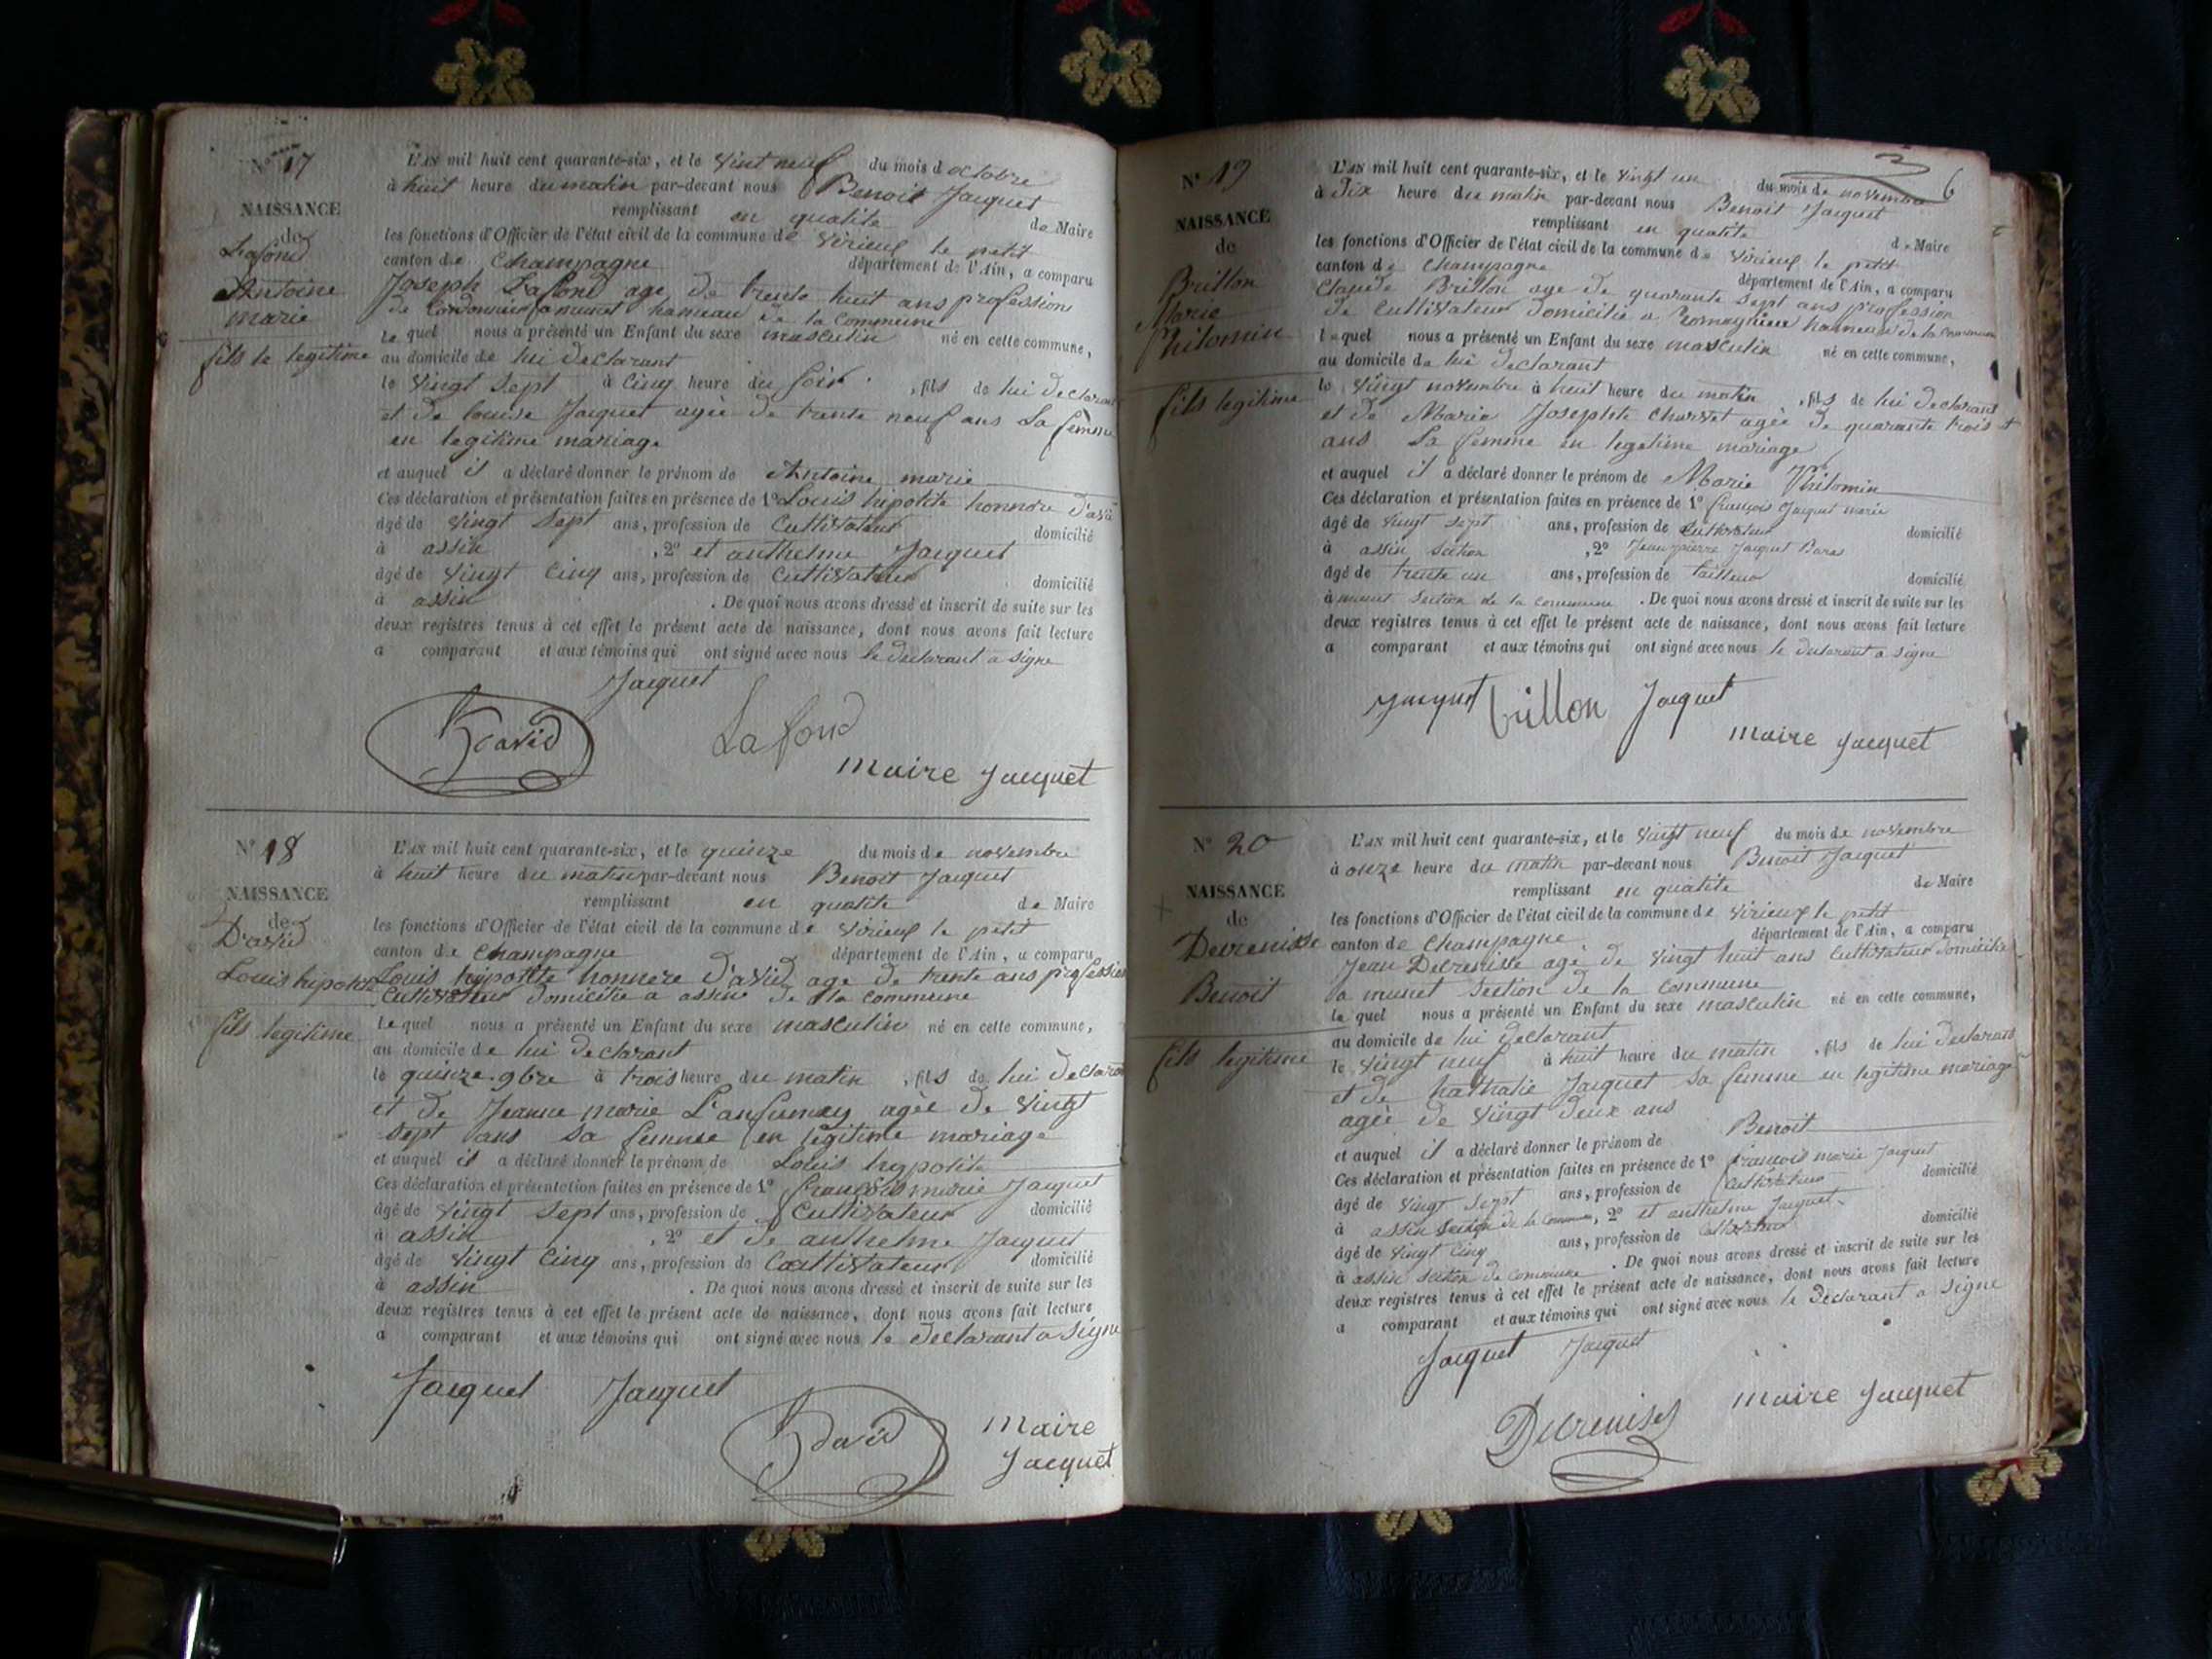 N° 17
NAISSANCE
de
Lafond
Antoine
marie
fils le legitime
L'AN mil huit cent quarante-six, et le vint neuf du mois d octobre
à huit heure du matin par-devant nous Benoit Jacquet
remplissant en qualite de Maire
les fonctions d'Officier de l'état civil de la commune de virieux le petit
canton de Champagne département de l'Ain, a comparu
Joseph Lafond age de trente huit ans profession
de Cordonnier a munet hameau de la Commune
le quel nous a présenté un Enfant du sexe masculin né en cette commune,
au domicile de lui declarant
le vingt sept à cinq heure du soir , fils de lui declarant
et de louise Jacquet agèe de trente neuf ans sa femme
en legitime mariage
et auquel il a déclaré donner le prénom de Antoine marie
Ces déclaration et présentation faites en présence de 1° Louis hipolite honnore D'avid
âgé de vingt sept ans, profession de Cultivateur domicilié
à assin , 2° et anthelme Jacquet
âgé de vingt cinq ans, profession de Cultivateur domicilié
à assin . De quoi nous avons dressé et inscrit de suite sur les
deux registres tenus à cet effet le présent acte de naissance, dont nous avons fait lecture
a comparant et aux témoins qui ont signé avec nous le declarant a signe
Jacquet
David
Lafond
maire Jacquet
N° 18
NAISSANCE
de
D'avid
Louis hipolite
fils legitime
L'AN mil huit cent quarante-six, et le quinze du mois de novembre
à huit heure du matin par-devant nous Benoit Jacquet
remplissant en qualite de Maire
les fonctions d'Officier de l'état civil de la commune de virieux le petit
canton de Champagne département de l'Ain, a comparu
Louis hipolite honnere D'avid age de trente ans profession
Cultivateur domicilie a assin de la commune
le quel nous a présenté un Enfant du sexe masculin né en cette commune,
au domicile de lui declarant
le quinze 9bre à trois heure du matin , fils de lui declarant
et de Jeanne marie agèe de vingt
sept ans sa femme en legitime mariage
et auquel il a déclaré donner le prénom de Louis hypolite
Ces déclaration et présentation faites en présence de 1° françois marie Jacquet
âgé de vingt sept ans, profession de Cultivateur domicilié
à assin , 2° et de anthelme Jacquet
âgé de vingt cinq ans, profession de Cultivateur domicilié
à assin . De quoi nous avons dressé et inscrit de suite sur les
deux registres tenus à cet effet le présent acte de naissance, dont nous avons fait lecture
a comparant et aux témoins qui ont signé avec nous le declarant a signe
Jacquet Jacquet
David
maire
Jacquet
6
N° 19
NAISSANCE
de
Brillon
Marie
Philomin
fils legitime
L'AN mil huit cent quarante-six, et le vingt un du mois de novembre
à dix heure du matin par-devant nous Benoit Jacquet
remplissant en qualite de Maire
les fonctions d'Officier de l'état civil de la commune de virieux le petit
canton de Champagne département de l'Ain, a comparu
Claude Brillon age de quarante sept ans profession
de Cultivateur domicilie a Romagnieu hameau de la commune
lequel nous a présenté un Enfant du sexe masculin né en cette commune,
au domicile de lui declarant
le vingt novembre à huit heure du matin , fils de lui declarant
et de Marie Josephte Charvet agèe de quarante trois
ans sa femme en legetime mariage
et auquel il a déclaré donner le prénom de Marie Philomin
Ces déclaration et présentation faites en présence de 1° françois Jacquet marie
âgé de vingt sept ans, profession de Cultivateur domicilié
à assin section , 2° Jean pierre Jacquet
âgé de trente un ans, profession de tailleur domicilié
à munet section de la commune . De quoi nous avons dressé et inscrit de suite sur les
deux registres tenus à cet effet le présent acte de naissance, dont nous avons fait lecture
a comparant et aux témoins qui ont signé avec nous le declarant a signe
Jacquet brillon Jacquet
maire Jacquet
N° 20
NAISSANCE
de
Devrenisse
Benoit
fils legitime
L'AN mil huit cent quarante-six, et le vingt neuf du mois de novembre
à onze heure du matin par-devant nous Benoit Jacquet
remplissant en qualite de Maire
les fonctions d'Officier de l'état civil de la commune de virieux le petit
canton de Champagne département de l'Ain, a comparu
Jean Devrenisse age de vingt huit ans Cultivateur domicilie
a munet section de la commune
le quel nous a présenté un Enfant du sexe masculin né en cette commune,
au domicile de lui declarant
le vingt neuf à huit heure du matin , fils de lui declarant
et de nathalie Jacquet sa femme en legitime mariage
agèe de vingt deux ans
et auquel il a déclaré donner le prénom de Benoit
Ces déclaration et présentation faites en présence de 1° françois marie Jacquet
âgé de vingt sept ans, profession de Cultivateur domicilié
à assin section de la Commune, 2° et anthelme Jacquet
âgé de vingt cinq ans, profession de Cultivateur domicilié
à assin section de commune . De quoi nous avons dressé et inscrit de suite sur les
deux registres tenus à cet effet le présent acte de naissance, dont nous avons fait lecture
a comparant et aux témoins qui ont signé avec nous le declarant a signe
Jacquet Jacquet
maire Jacquet